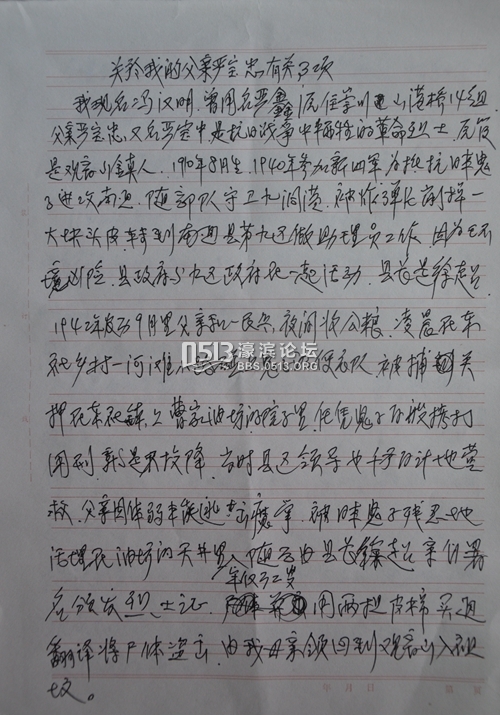 关于我的父亲严宝忠有关3项
我现名冯汉明,曾用名严鑫,
父亲严宝忠,又名严宝中是抗日战争中牺牲的革命烈士,
是观音山镇人,1910年8月生,1940年参加新四军为抵抗日本鬼
子进攻南通,随部队守卫九圩港,被炸弹片削掉一
大块头皮,转到南通县第九区做助理员工作,因为
境凶险,县政府与九区政府在一起活动,县长是
1942年农历9月里父亲和一民兵,夜间将公粮,凌晨在东
社乡村一河滩 便衣队,被捕关
押在东社镇上曹家油坊的院子里,任凭鬼子百般拷打
用刑,就是不投降,当时县区领导也千方百计地营
救,父亲因体弱未能逃出魔掌,被日本鬼子残忍地
活埋在油坊的天井里,随后由县长 亲自署
年仅32岁
名颁发烈士证, 用两担皮棉买通
翻译将尸体盗出,由我母亲领回到观音山入祖
坟。
0513濠滨论坛
BBS.0513.ORG
年 月 日